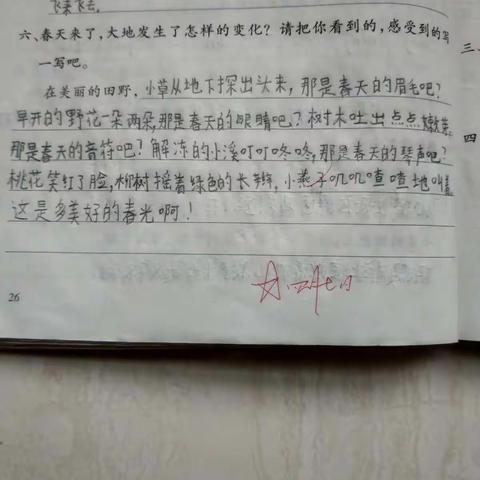 飞来飞去。
六、春天来了，大地发生了怎样的变化？请把你看到的，感受到的写
一写吧。
在美丽的田野，小草从地下探出头来，那是春天的眉毛吧？
早开的野花一朵两朵，那是春天的眼睛吧？树木吐出点点嫩芽，
那是春天的音符吧？解冻的小溪叮叮咚咚，那是春天的琴声吧？
桃花笑红了脸，柳树摇着绿色的长辫，小燕子叽叽喳喳地叫着，
这是多美好的春光啊！
26
三、
四